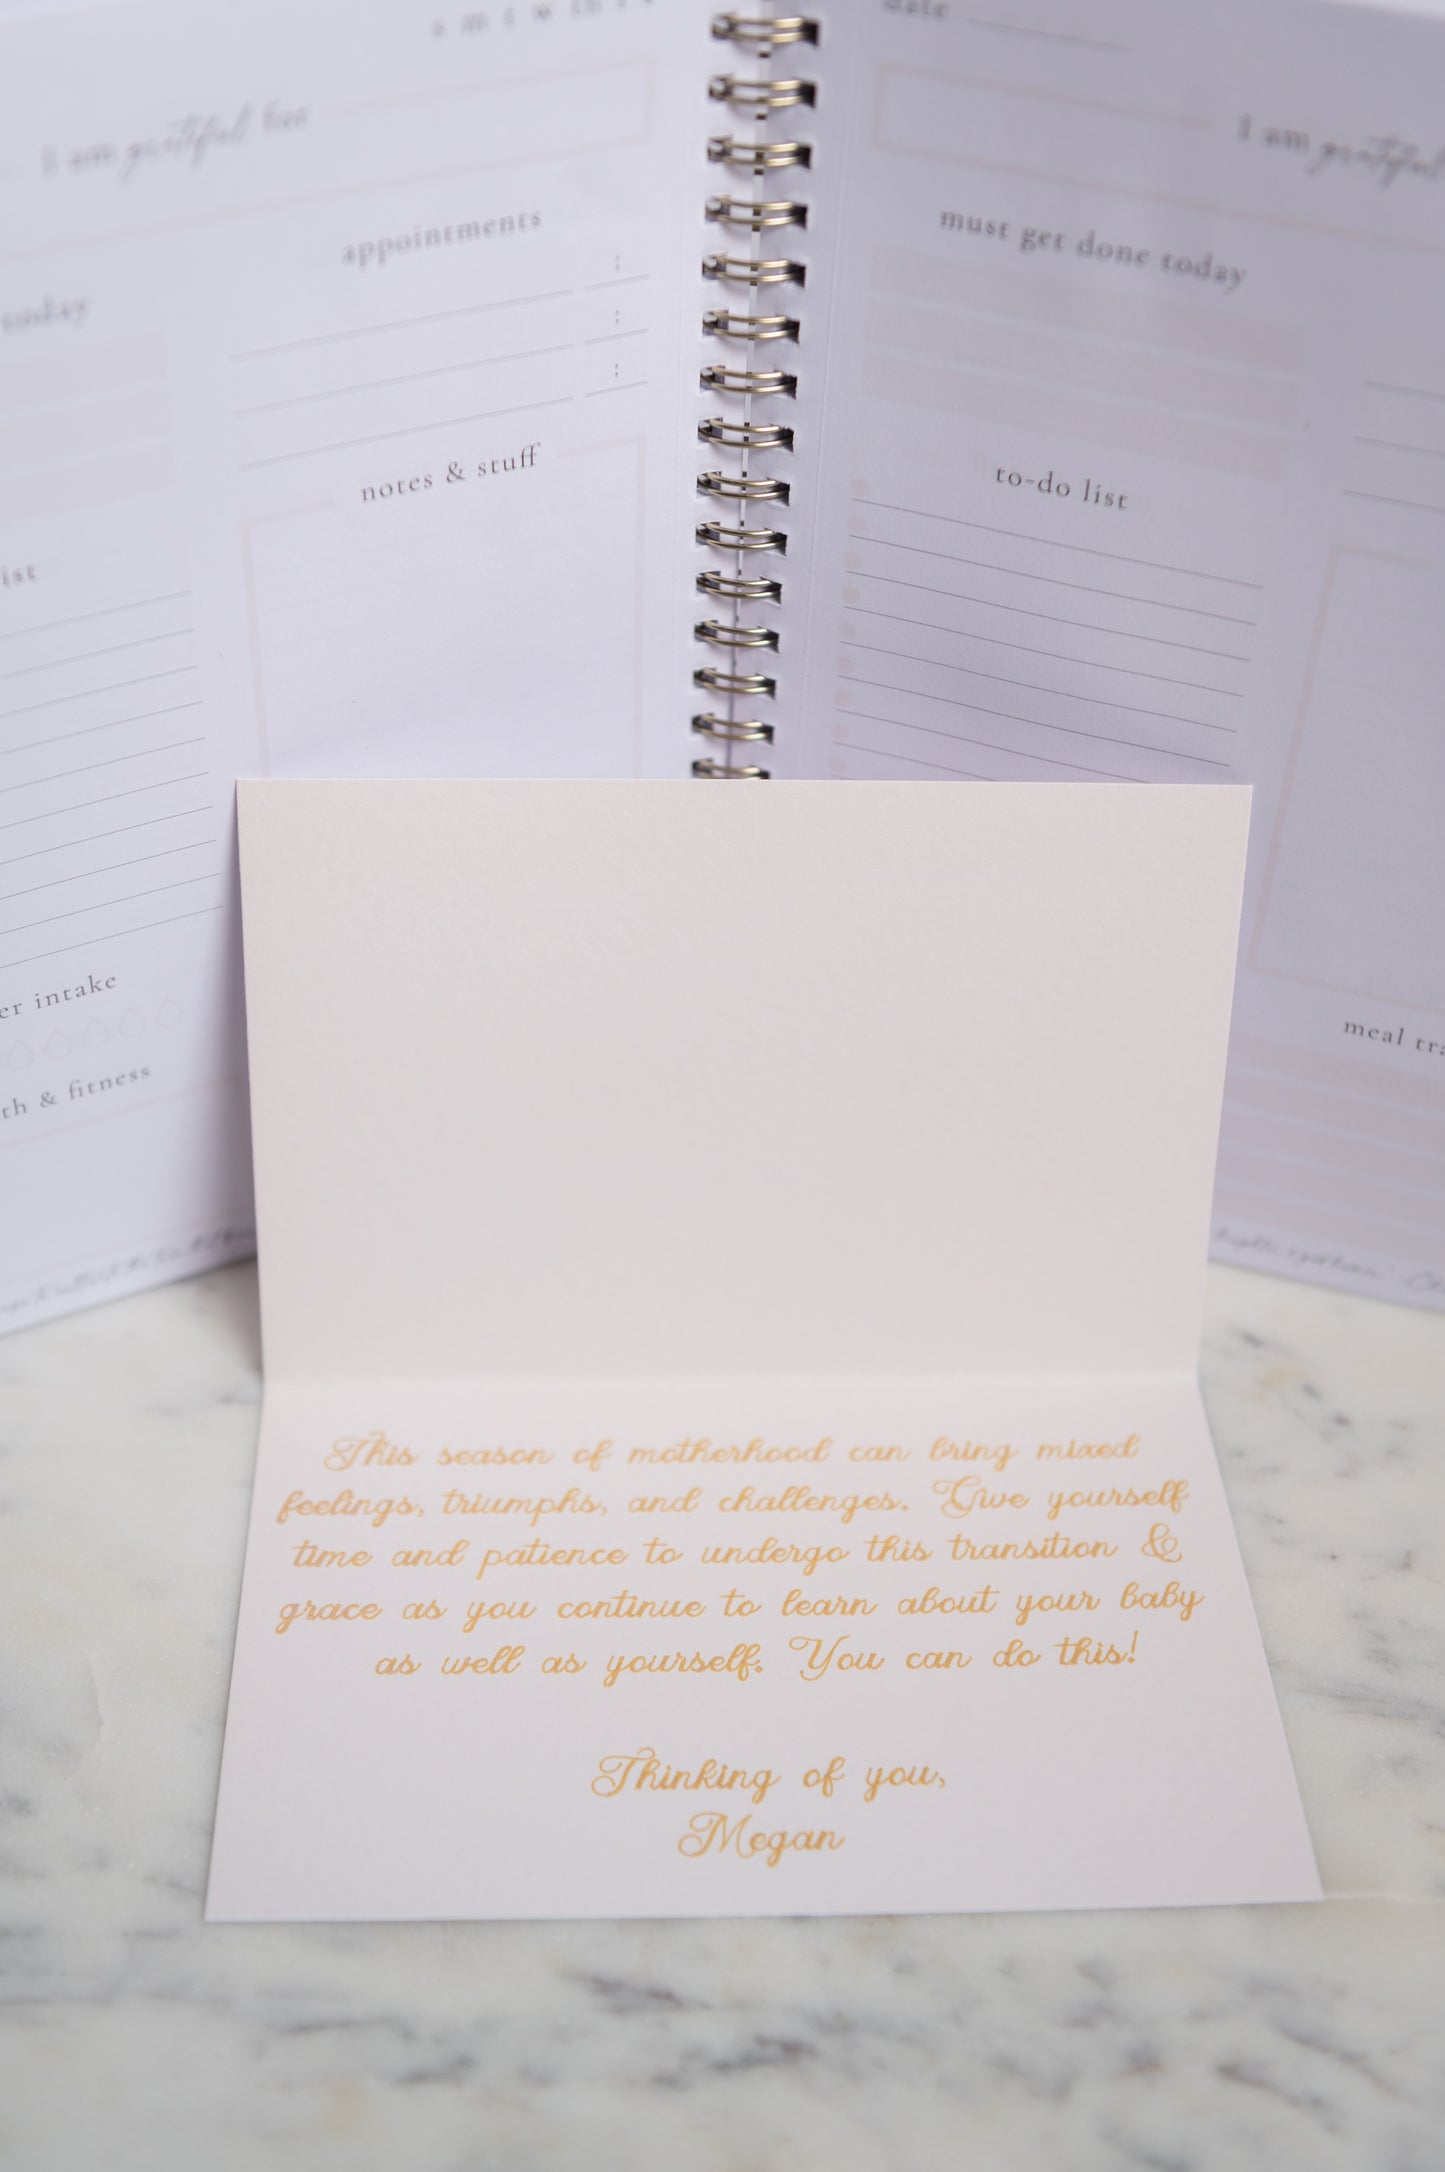 s m t w th f s
I am grateful for
appointments
:
:
:
today
notes & stuff
ist
er intake
th & fitness
date
I am grateful
must get done today
to-do list
meal tra
This season of motherhood can bring mixed
feelings, triumphs, and challenges. Give yourself
time and patience to undergo this transition &
grace as you continue to learn about your baby
as well as yourself. You can do this!
Thinking of you,
Megan